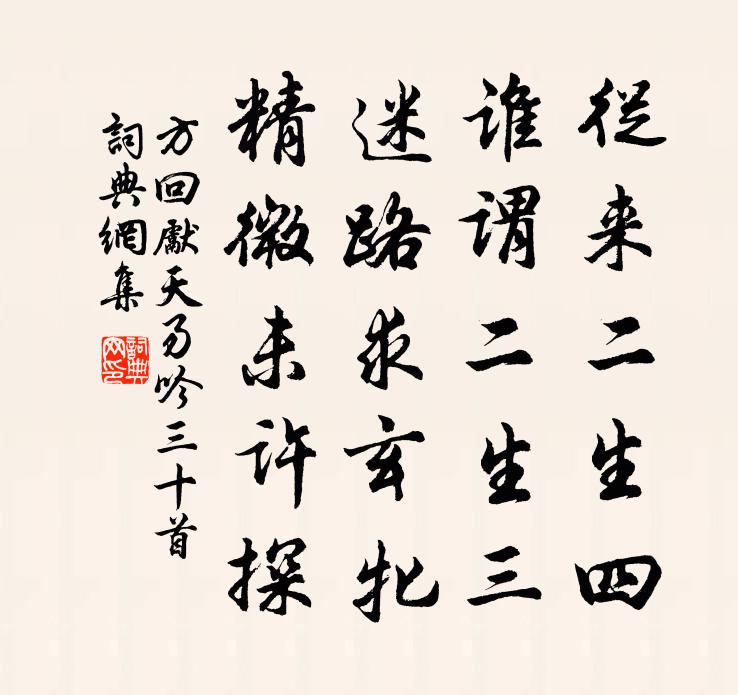 從来二生四
谁謂二生三
迷路求玄牝
精微未许探
方回獻天易吟三十首
詞典網集
詞典網印